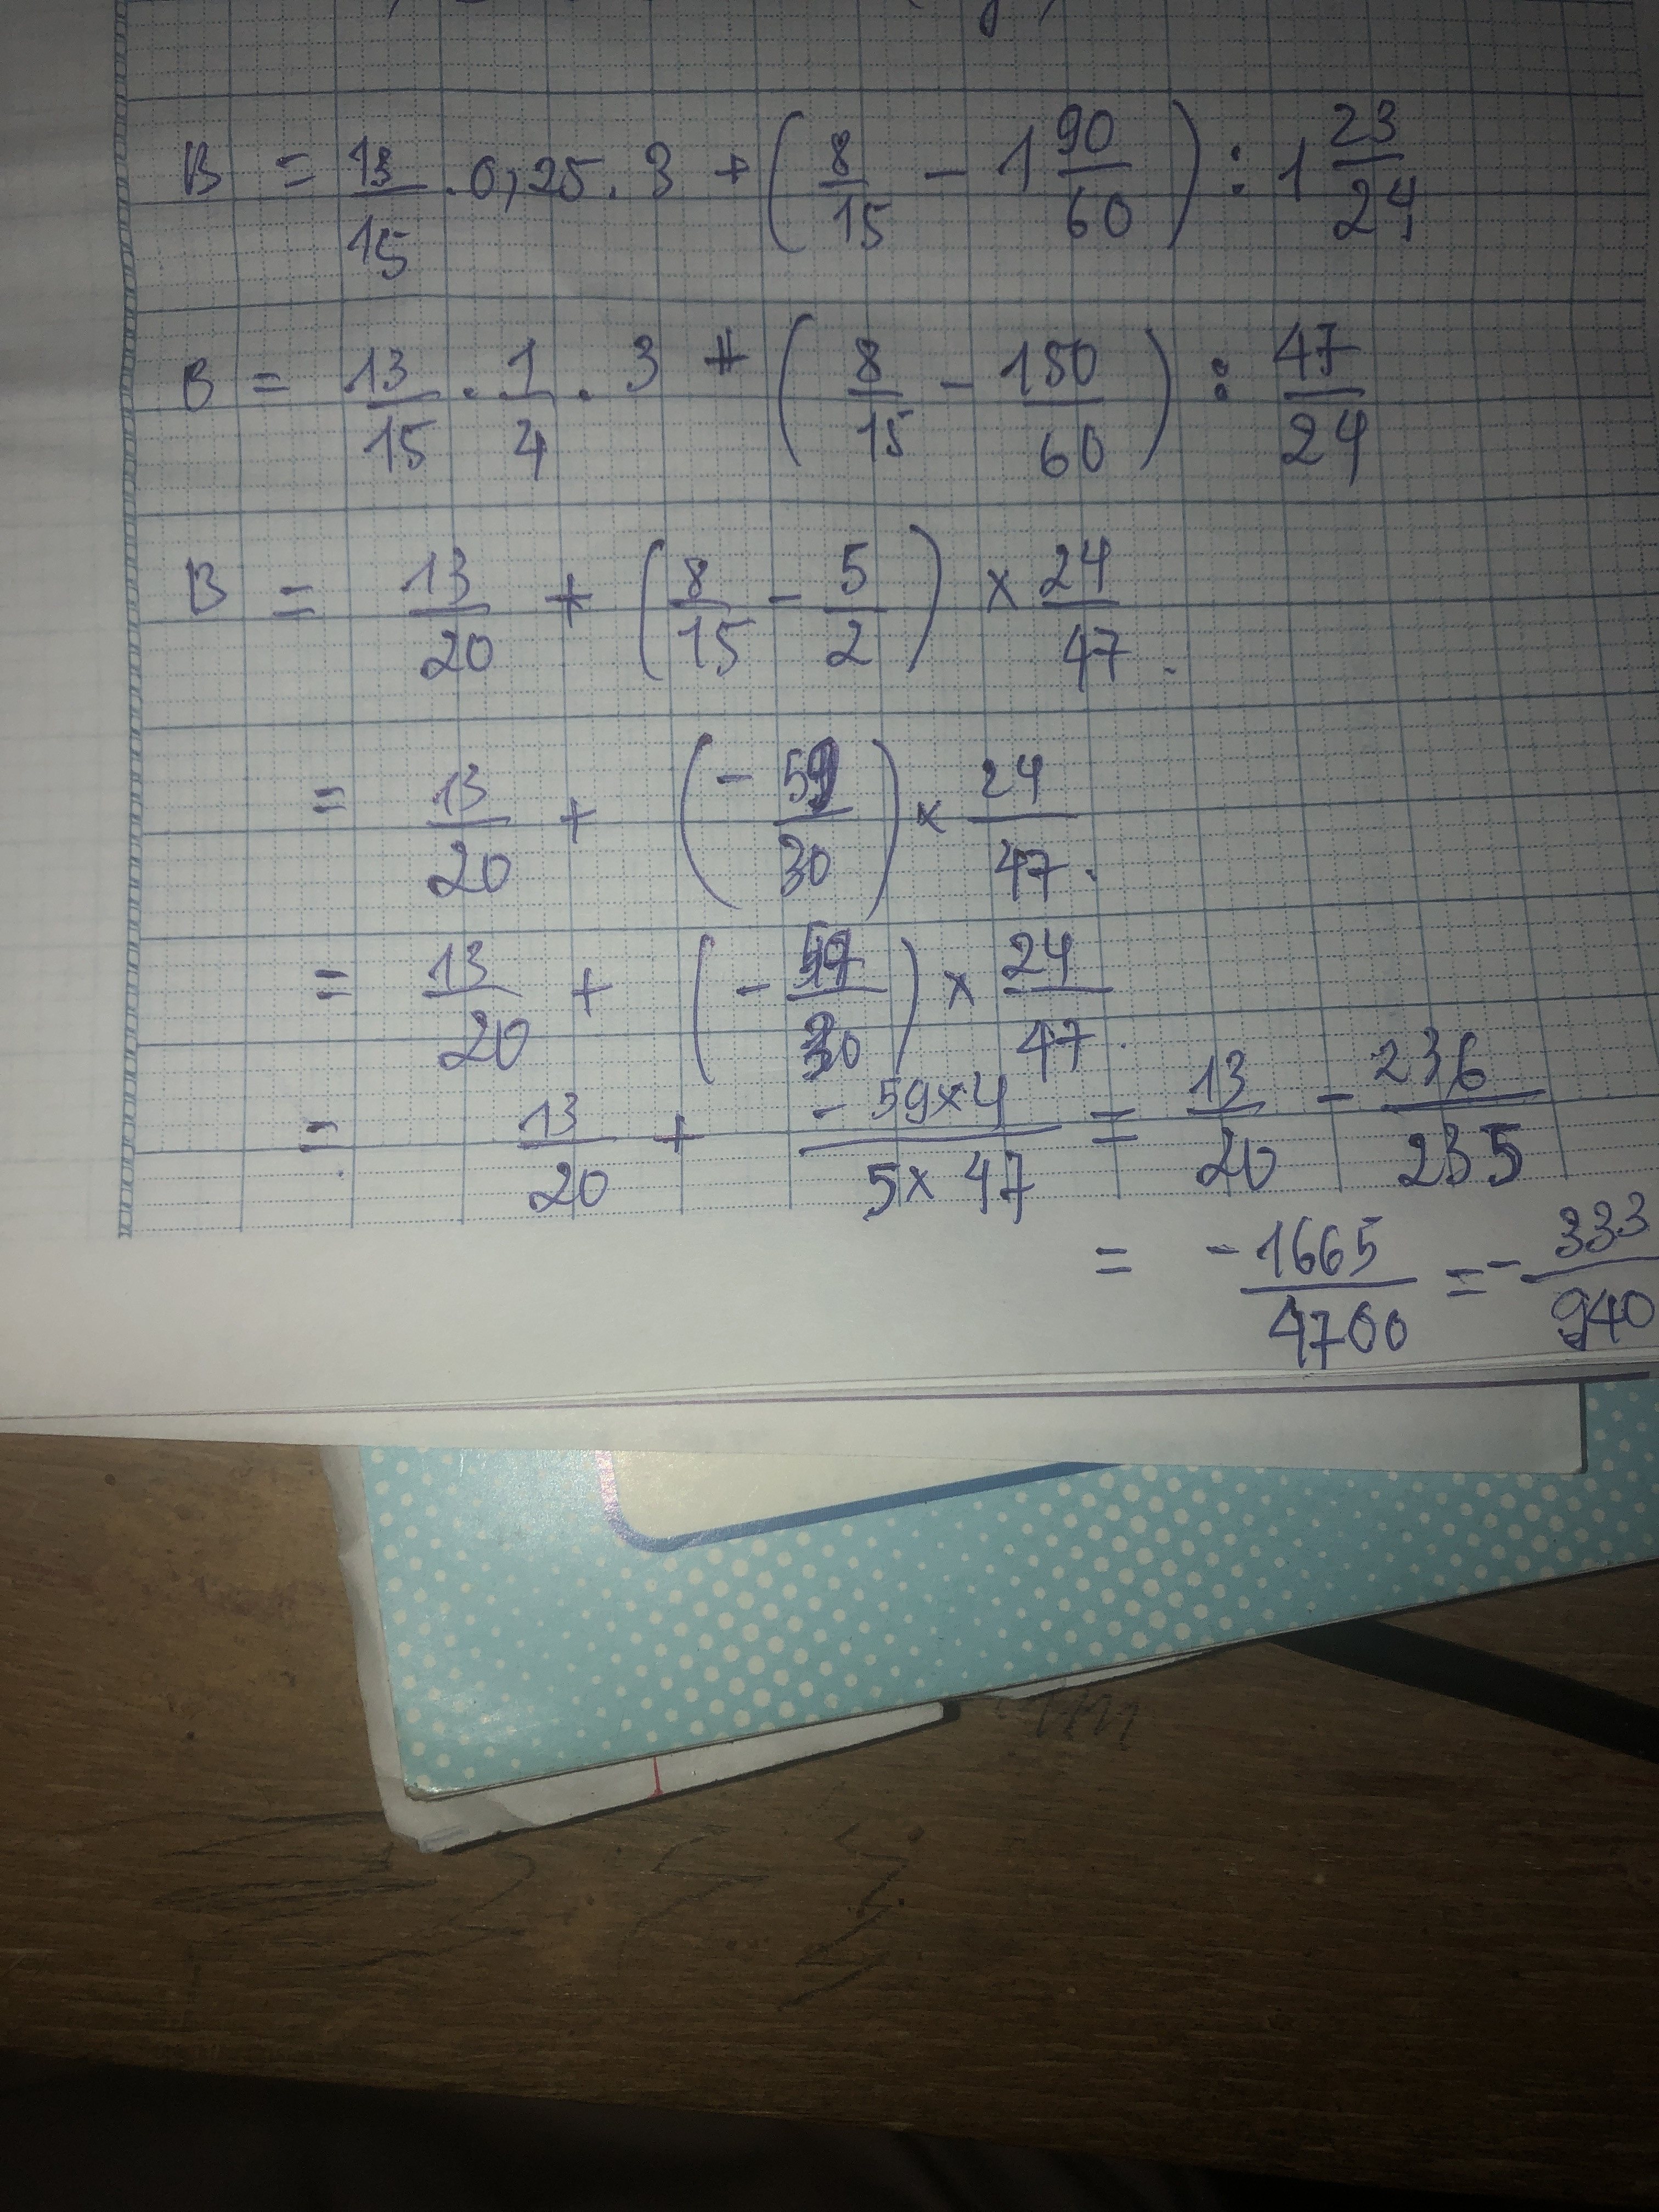 B = 13/15 . 0,25 . 3 + (8/15 - 1 90/60) : 1 23/24
B = 13/15 . 1/4 . 3 + (8/15 - 150/60) : 47/24
B = 13/20 + (8/15 - 5/2) × 24/47.
= 13/20 + (- 59/30) × 24/47.
= 13/20 + (- 59/30) × 24/47.
= 13/20 + - 59×4/5×47 = 13/20 - 236/235
= - 1665/4700 = - 333/940